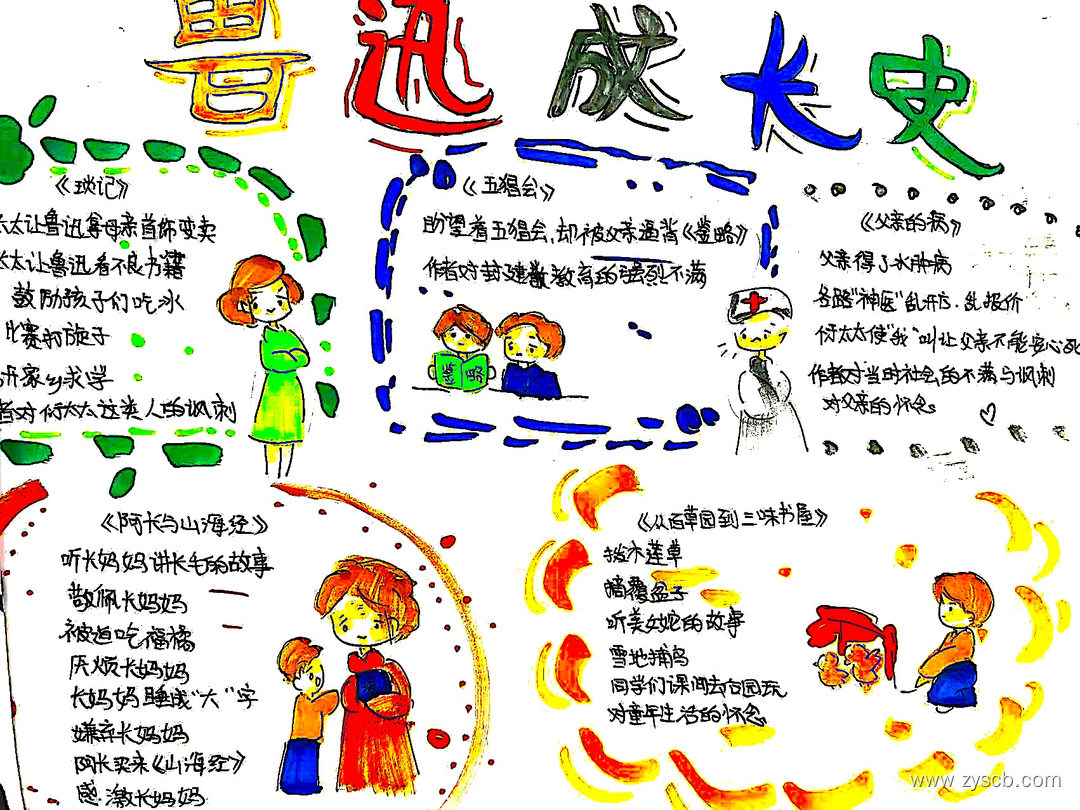 鲁迅成长史
《琐记》
太太让鲁迅拿母亲首饰变卖
太太让鲁迅看不良书籍
鼓励孩子们吃冰
比赛打旋子
开家乡求学
者对衍太太这类人的讽刺
《五猖会》
盼望着五猖会,却被父亲逼背《鉴略》
作者对封建教育的强烈不满
鉴略
《父亲的病》
父亲得了水肿病
各路"神医"乱开方,乱报价
衍太太使"我"叫让父亲不能安心死
作者对当时社会的不满与讽刺
对父亲的怀念
《阿长与山海经》
听长妈妈讲长毛的故事
敬佩长妈妈
被迫吃福橘
厌烦长妈妈
长妈妈睡成"大"字
嫌弃长妈妈
阿长买来《山海经》
感激长妈妈
《从百草园到三味书屋》
拔木莲草
摘覆盆子
听美女蛇的故事
雪地捕鸟
同学们课间去后园玩
对童年生活的怀念
www.zyscb.com